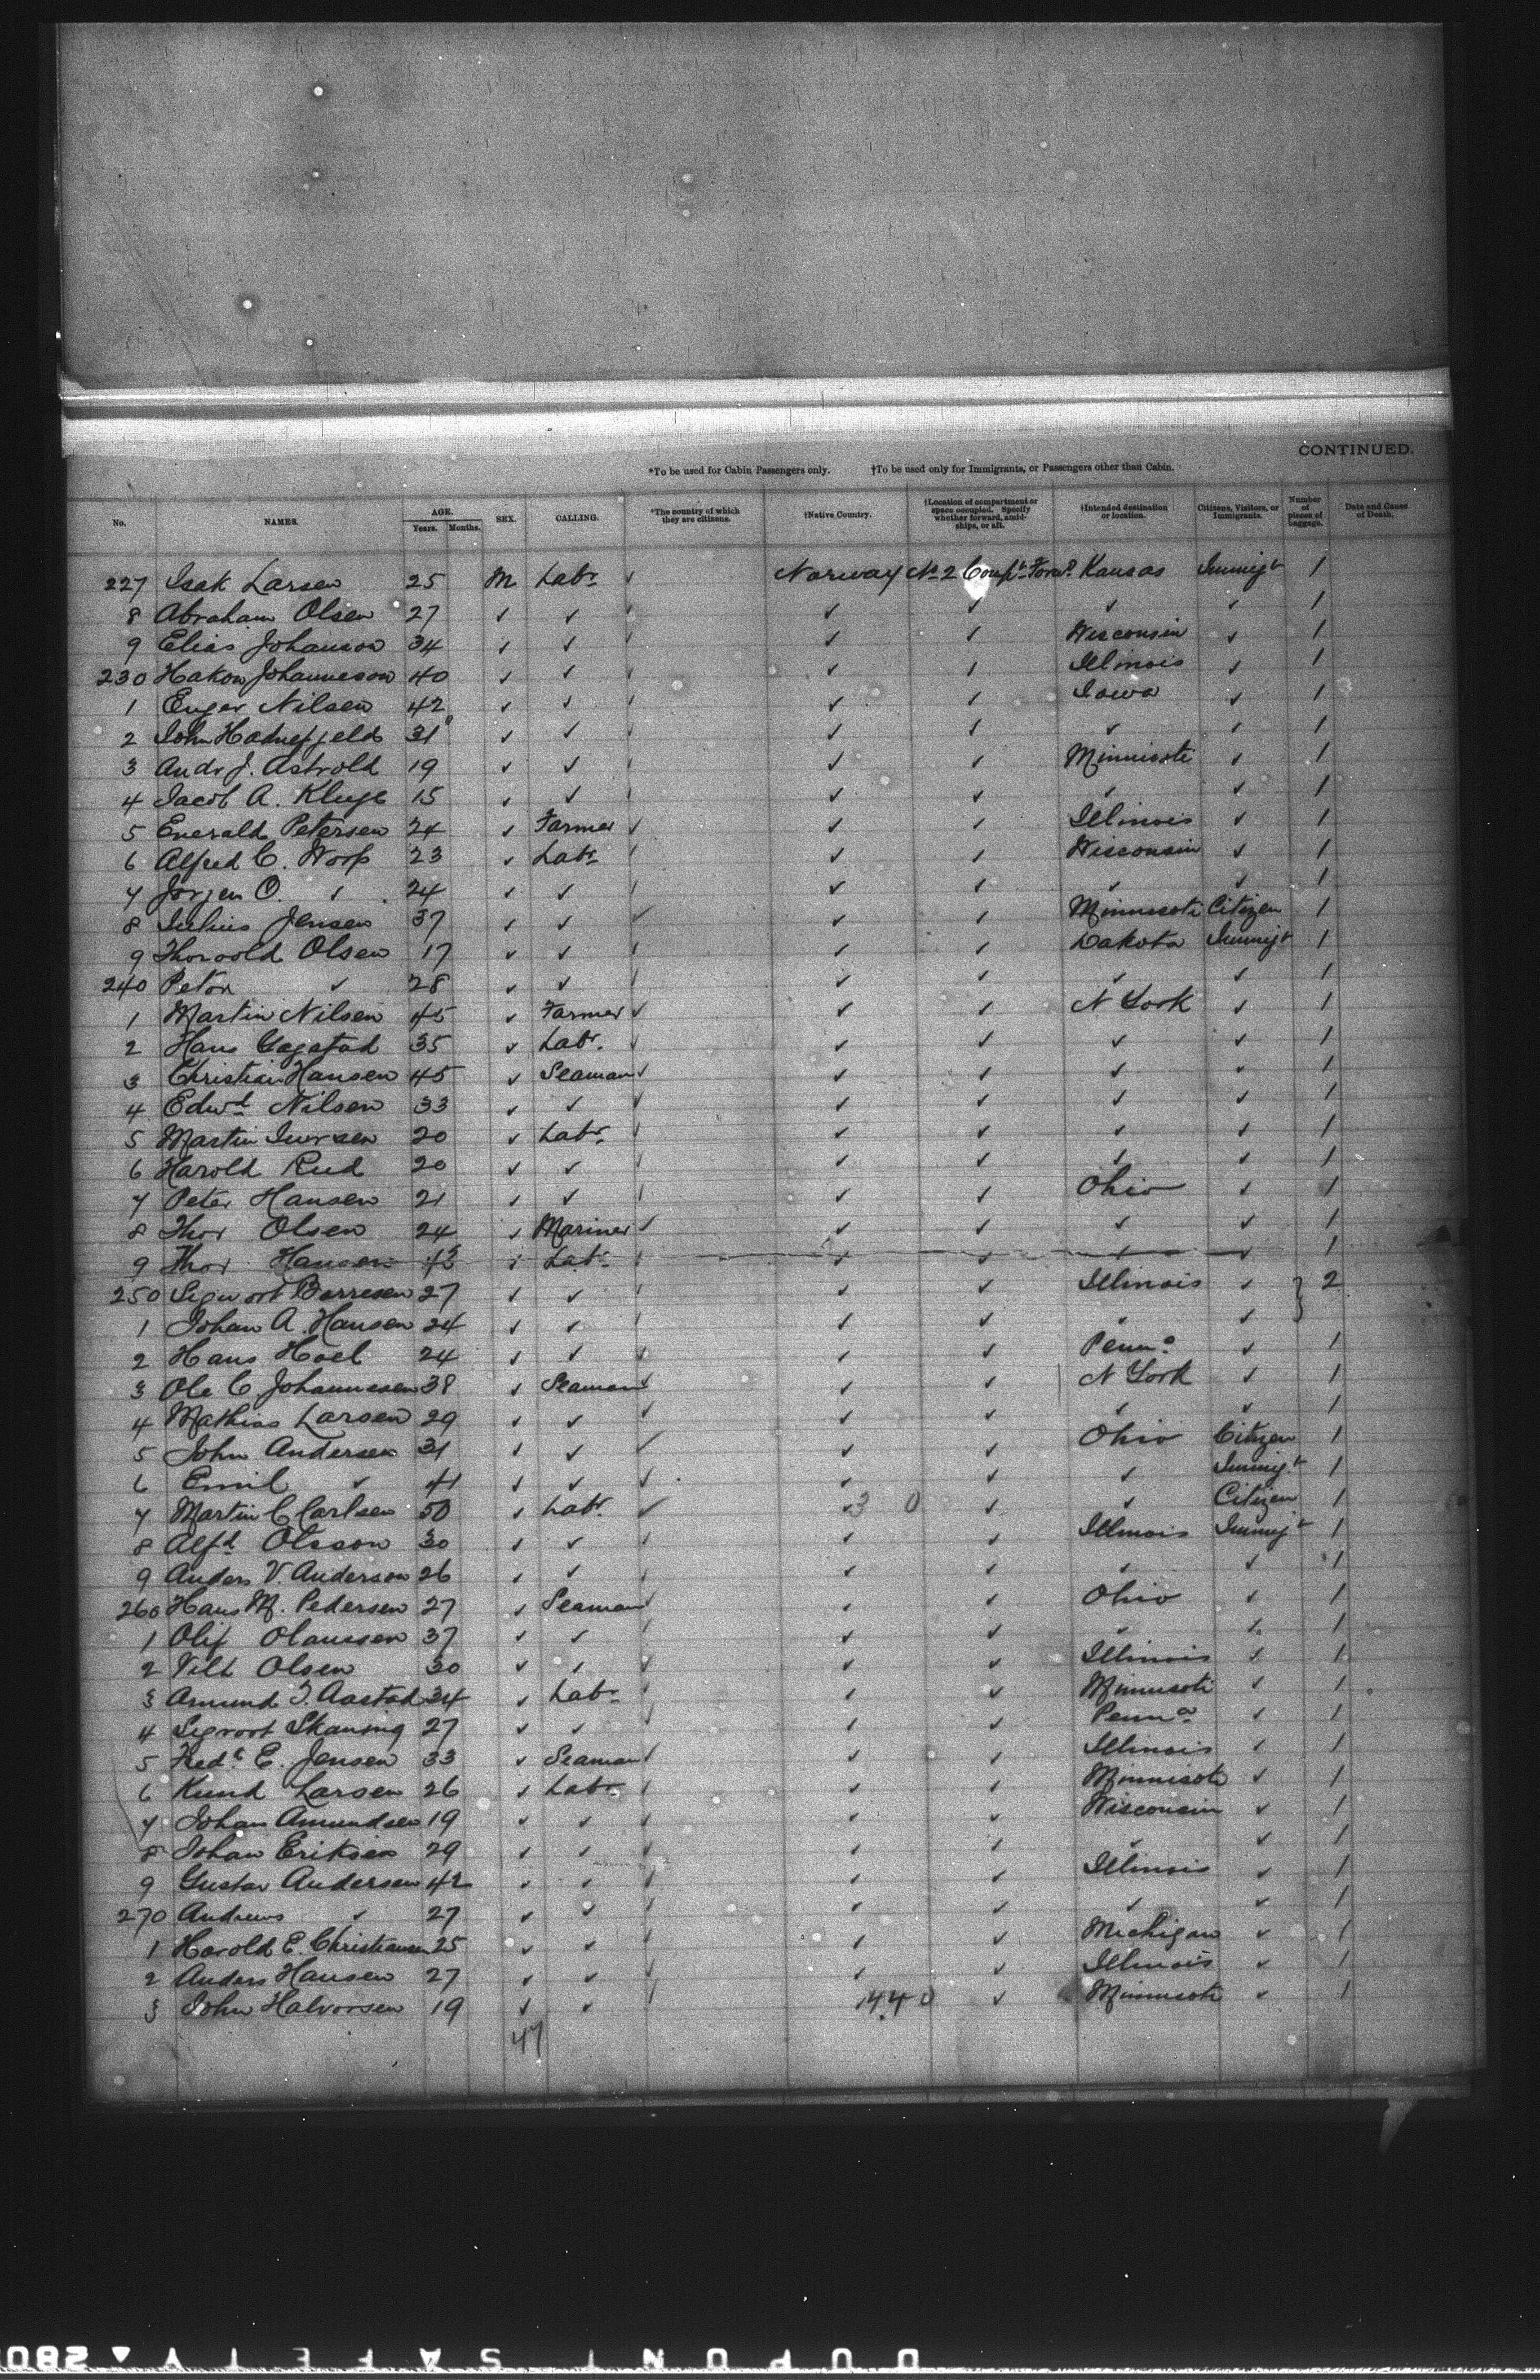 CONTINUED.
*To be used for Cabin Passengers only. †To be used only for Immigrants, or Passengers other than Cabin.
No. NAMES. AGE. Years. Months. SEX. CALLING. *The country of which they are citizens. †Native Country. †Location of compartment or space occupied. Specify whether forward, amidships, or aft. †Intended destination or location. Citizens, Visitors, or Immigrants. Number of pieces of baggage. Date and Cause of Death.
227 Isak Larsen 25 M Labr ✓ Norway No 2 Compt Forwd Kansas Immigt 1
8 Abraham Olsen 27 ✓ ✓ ✓ ✓ ✓ ✓ 1
9 Elias Johanson 34 ✓ ✓ ✓ ✓ Wisconsin ✓ 1
230 Hakon Johanneson 40 ✓ ✓ ✓ ✓ Illinois ✓ 1
1 Enger Nilsen 42 ✓ ✓ ✓ ✓ Iowa ✓ 1
2 John 31 ✓ ✓ ✓ ✓ ✓ ✓ 1
3 Andr J. Astvold 19 ✓ ✓ ✓ ✓ Minnisoti ✓ 1
4 Jacob A. 15 ✓ ✓ ✓ ✓ ✓ ✓ 1
5 Enerald Petersen 24 ✓ Farmer ✓ ✓ ✓ Illinois ✓ 1
6 Alfred C. 23 ✓ Labr ✓ ✓ Wisconsin ✓ 1
7 Jorgen O. ✓ 24 ✓ ✓ ✓ ✓ ✓ ✓ 1
8 Julius Jensen 37 ✓ ✓ ✓ ✓ ✓ Minnesoti Citizen 1
9 Thorvold Olsen 17 ✓ ✓ ✓ ✓ Dakota Immigt 1
240 Peter ✓ 28 ✓ ✓ ✓ ✓ ✓ ✓ 1
1 Martin Nilsen 45 ✓ Farmer ✓ ✓ ✓ N York ✓ 1
2 Hans 35 ✓ Labr. ✓ ✓ ✓ ✓ 1
3 Christian Hansen 45 ✓ Seaman ✓ ✓ ✓ ✓ ✓ 1
4 Edwd Nilsen 33 ✓ ✓ ✓ ✓ ✓ ✓ ✓ 1
5 Martin Iversen 20 ✓ Labr. ✓ ✓ ✓ ✓ 1
6 Harold Rud 20 ✓ ✓ ✓ ✓ ✓ ✓ 1
7 Peter Hansen 21 ✓ ✓ ✓ ✓ Ohio ✓ 1
8 Thor Olsen 24 ✓ Mariner ✓ ✓ ✓ ✓ ✓ 1
9 Thor Hansen 43 ✓ Labr ✓ ✓ ✓ ✓ 1
250 Sigwort Borresen 27 ✓ ✓ ✓ ✓ Illinois ✓ } 2
1 Johan A. Hansen 24 ✓ ✓ ✓ ✓ ✓ ✓
2 Hans Hoel 24 ✓ ✓ ✓ ✓ Penna ✓ 1
3 Ole C. Johannesen 38 ✓ Seaman ✓ ✓ ✓ N York ✓ 1
4 Mathias Larsen 29 ✓ ✓ ✓ ✓ ✓ ✓ ✓ 1
5 John Andersen 31 ✓ ✓ ✓ ✓ ✓ Ohio Citizen 1
6 Emil ✓ 41 ✓ ✓ ✓ ✓ ✓ ✓ Immigt 1
7 Martin C Carlsen 50 ✓ Labr. ✓ ✓ 3 0 ✓ ✓ Citizen 1
8 Alfd Olsson 30 ✓ ✓ ✓ ✓ Illinois Immigt 1
9 Anders V. Anderson 26 ✓ ✓ ✓ ✓ ✓ ✓ 1
260 Hans M. Pedersen 27 ✓ Seaman ✓ ✓ ✓ Ohio ✓ 1
1 Olif Olaussen 37 ✓ ✓ ✓ ✓ ✓ ✓ 1
2 Olsen 30 ✓ ✓ ✓ ✓ ✓ Illinois ✓ 1
3 Amund T. Aastad 34 ✓ Labr ✓ ✓ Minnesoti ✓ 1
4 Sigvort Skaning 27 ✓ ✓ ✓ ✓ Penna ✓ 1
5 Fredk E. Jensen 33 ✓ Seaman ✓ ✓ ✓ Illinois ✓ 1
6 Knud Larsen 26 ✓ Labr ✓ ✓ Minnisoti ✓ 1
7 Johan Amundsen 19 ✓ ✓ ✓ ✓ ✓ Wisconsin ✓ 1
8 Johan Eriksen 29 ✓ ✓ ✓ ✓ ✓ ✓ 1
9 Gustav Andersen 42 ✓ ✓ ✓ ✓ Illinois ✓ 1
270 Andrews ✓ 27 ✓ ✓ ✓ ✓ ✓ ✓ 1
1 Harold E. Christiansen 25 ✓ ✓ ✓ ✓ Michigan ✓ 1
2 Anders Hansen 27 ✓ ✓ ✓ ✓ Illinois ✓ 1
3 John Halvorsen 19 ✓ ✓ 440 ✓ Minnesoti ✓ 1
47
DUPONT SAFETY 280